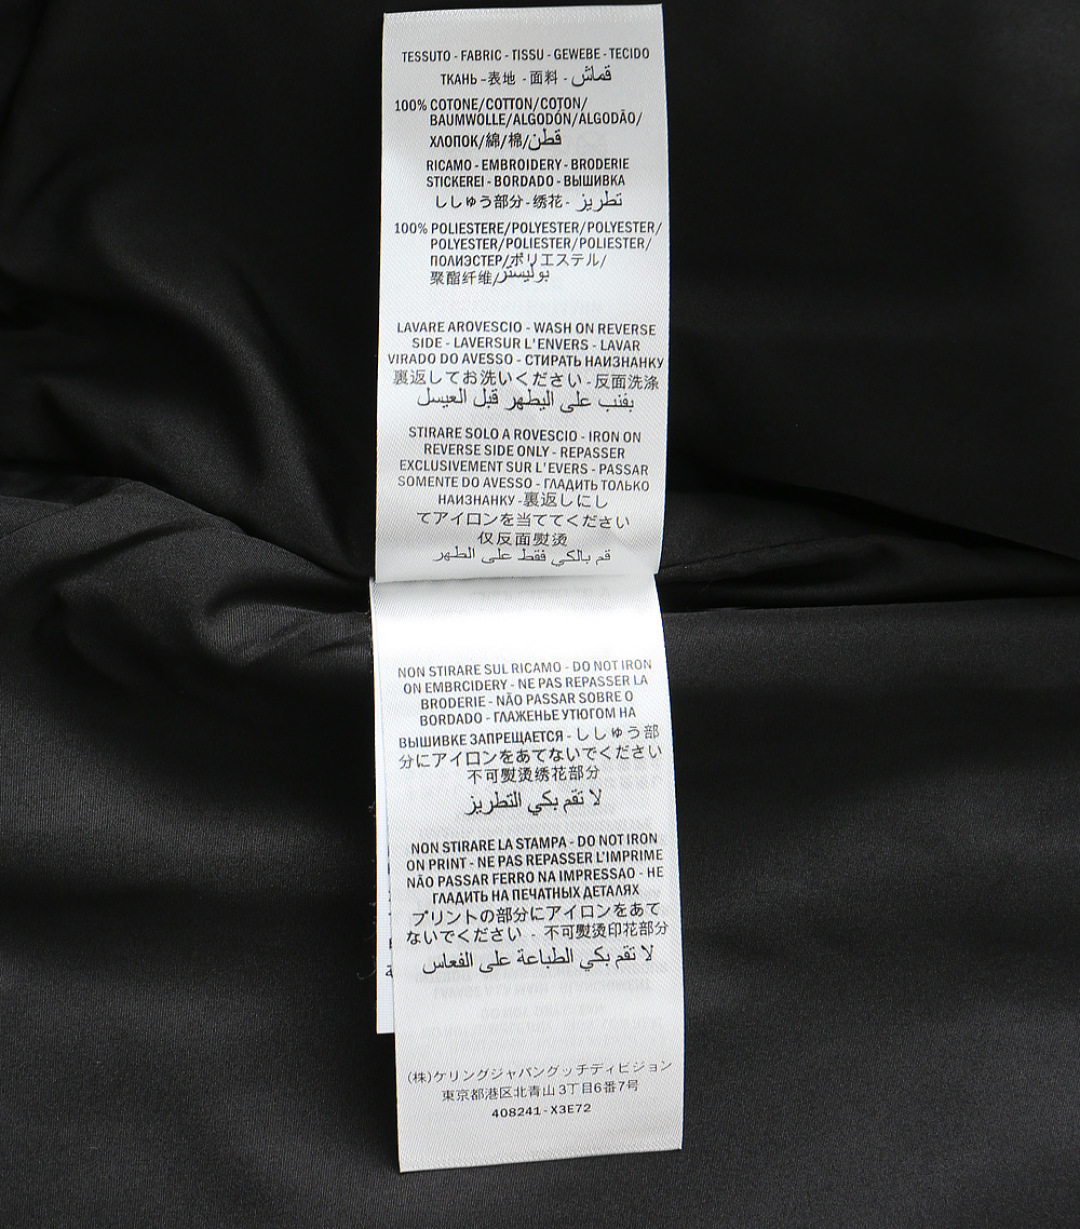 TESSUTO - FABRIC - TISSU - GEWEBE - TECIDO
ТКАНЬ - 表地 - 面料 - قماش
100% COTONE/COTTON/COTON/
BAUMWOLLE/ALGODÓN/ALGODÃO/
ХЛОПОК/綿/棉/قطن
RICAMO - EMBROIDERY - BRODERIE
STICKEREI - BORDADO - ВЫШИВКА
ししゅう部分 - 绣花 - تطريز
100% POLIESTERE/POLYESTER/POLYESTER/
POLYESTER/POLIESTER/POLIESTER/
ПОЛИЭСТЕР/ポリエステル/
聚酯纤维/بوليستر
LAVARE AROVESCIO - WASH ON REVERSE
SIDE - LAVERSUR L'ENVERS - LAVAR
VIRADO DO AVESSO - СТИРАТЬ НАИЗНАНКУ
裏返してお洗いください - 反面洗涤
بفنب على اليطهر قبل العيسل
STIRARE SOLO A ROVESCIO - IRON ON
REVERSE SIDE ONLY - REPASSER
EXCLUSIVEMENT SUR L'EVERS - PASSAR
SOMENTE DO AVESSO - ГЛАДИТЬ ТОЛЬКО
НАИЗНАНКУ - 裏返しにし
てアイロンを当ててください
仅反面熨烫
قم بالكي فقط على الطهر
NON STIRARE SUL RICAMO - DO NOT IRON
ON EMBRCIDERY - NE PAS REPASSER LA
BRODERIE - NÃO PASSAR SOBRE O
BORDADO - ГЛАЖЕНЬЕ УТЮГОМ НА
ВЫШИВКЕ ЗАПРЕЩАЕТСЯ - ししゅう部
分にアイロンをあてないでください
不可熨烫绣花部分
لا تقم بكي التطريز
NON STIRARE LA STAMPA - DO NOT IRON
ON PRINT - NE PAS REPASSER L'IMPRIME
NÃO PASSAR FERRO NA IMPRESSAO - НЕ
ГЛАДИТЬ НА ПЕЧАТНЫХ ДЕТАЛЯХ
プリントの部分にアイロンをあて
ないでください - 不可熨烫印花部分
لا تقم بكي الطباعة على الفعاس
(株)ケリングジャパングッチディビジョン
東京都港区北青山3丁目6番7号
408241-X3E72